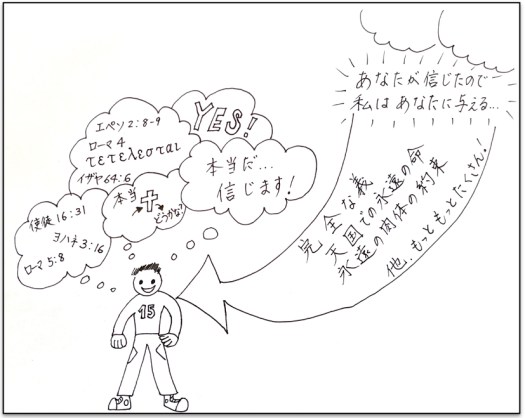 あなたが信じたので
私はあなたに与える...
エペソ2:8-9
ローマ4
τετελεσται
イザヤ64:6
YES!
本当だ...
信じます!
本当
どうかな?
使徒16:31
ヨハネ3:16
ローマ5:8
15
完全な義
天国での永遠の命
永遠の肉体の約束
他、もっともっとたくさん!